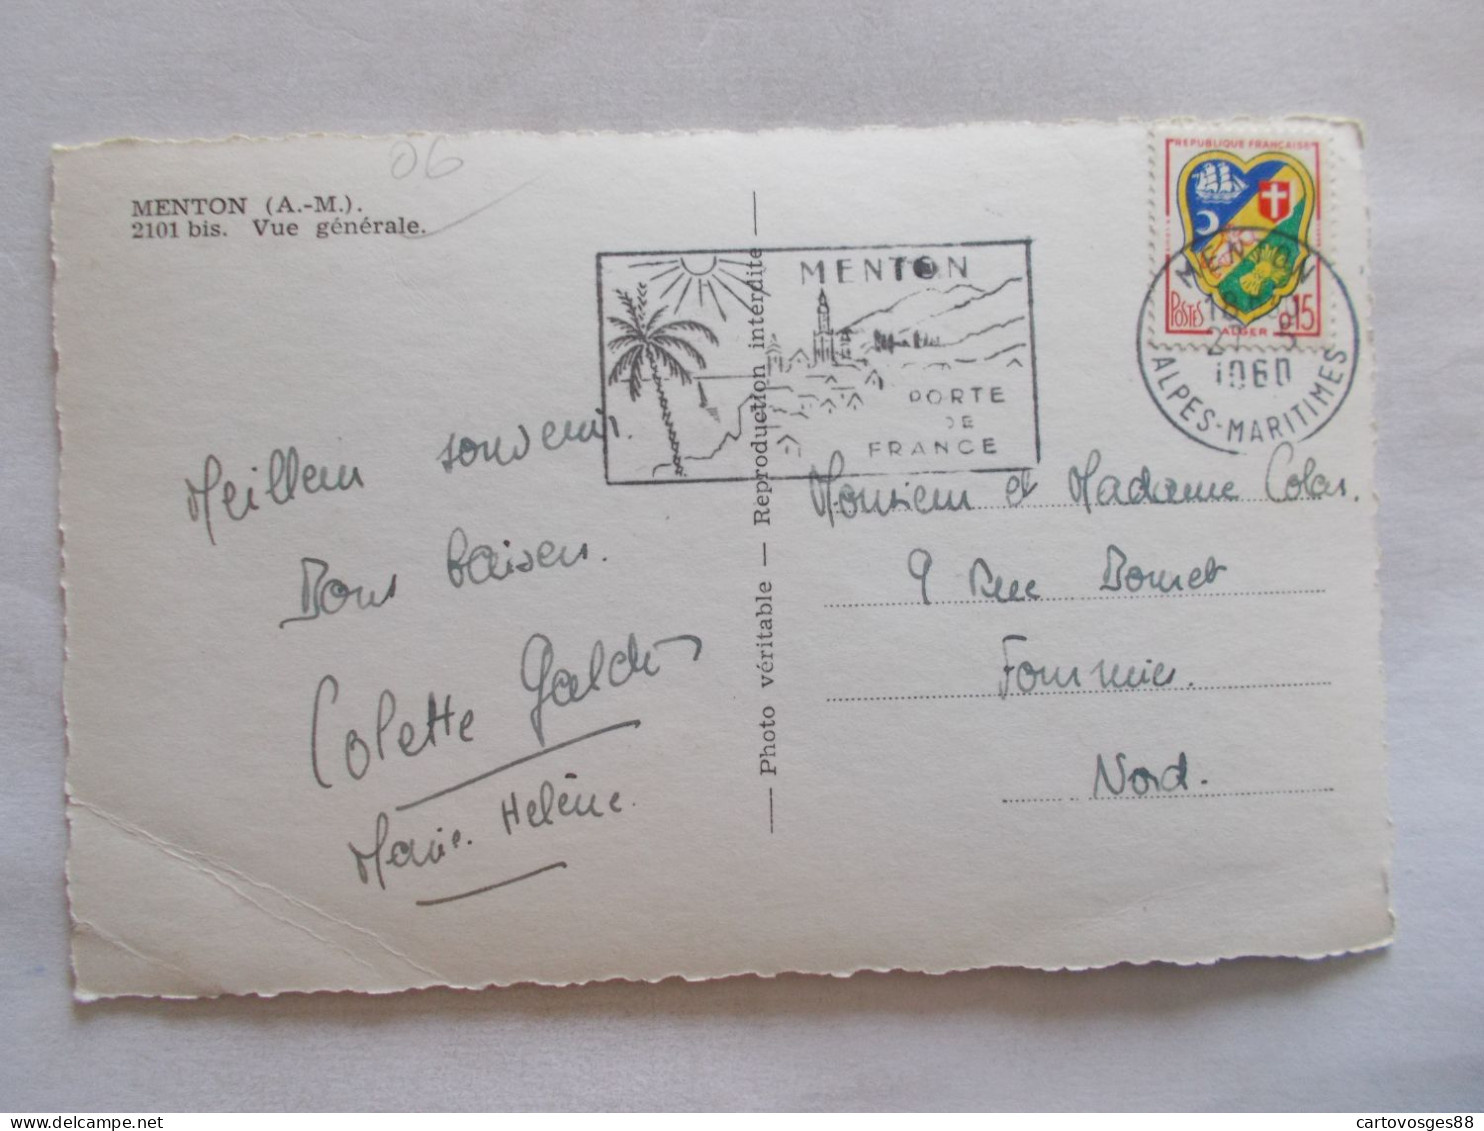 06
MENTON (A.-M.).
2101 bis. Vue générale.
Meilleur souvenir.
Bons baisers.
Colette
Marie. Hélène.
Photo véritable — Reproduction interdite
MENTON
PORTE
DE
FRANCE
REPUBLIQUE FRANÇAISE
POSTES
0,15
ALGER
MENTON
1960
ALPES-MARITIMES
Monsieur et Madame Colas.
9 Rue
Fourmies.
Nord.
cartovosges88